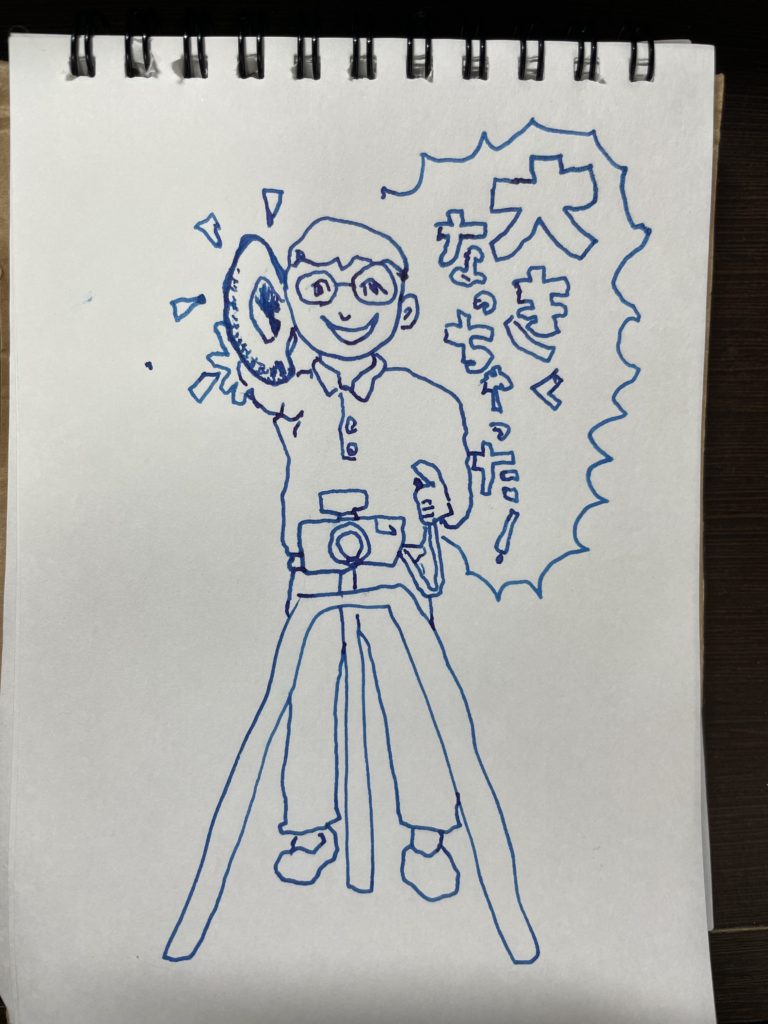 大きく
なっちゃった!